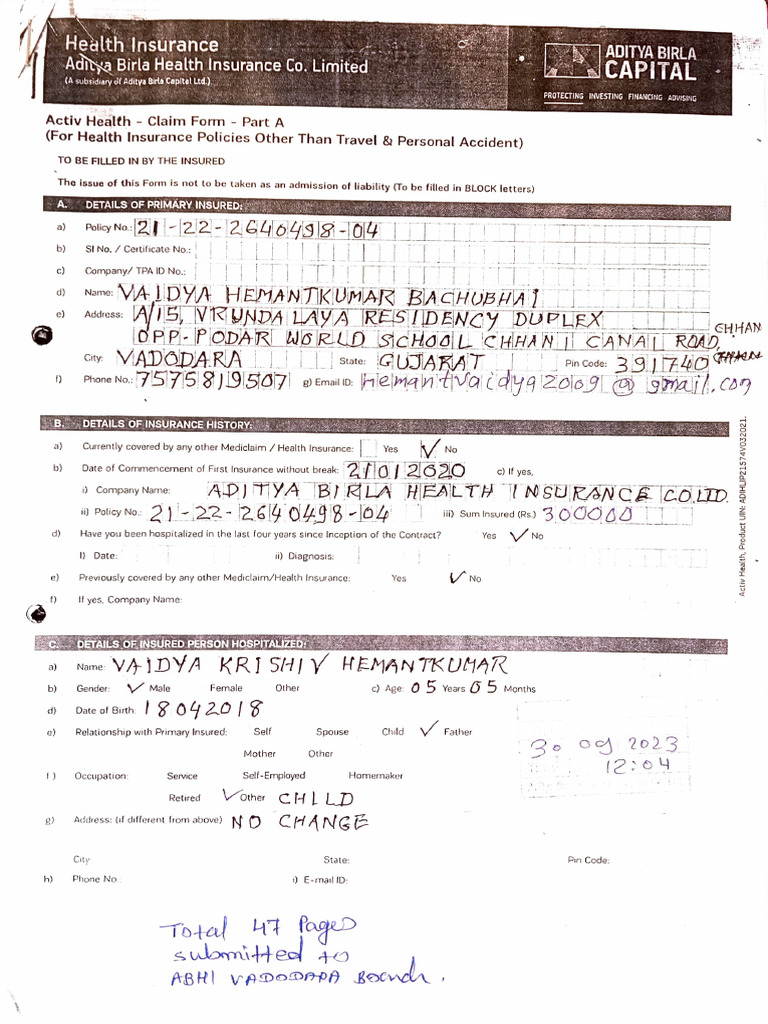 Health Insurance
Aditya Birla Health Insurance Co. Limited
(A subsidiary of Aditya Birla Capital Ltd.)
ADITYA BIRLA
CAPITAL
PROTECTING INVESTING FINANCING ADVISING
Activ Health - Claim Form - Part A
(For Health Insurance Policies Other Than Travel & Personal Accident)
TO BE FILLED IN BY THE INSURED
The issue of this Form is not to be taken as an admission of liability (To be filled in BLOCK letters)
A. DETAILS OF PRIMARY INSURED:
a) Policy No.: 21-22-2640498-04
b) Sl No. / Certificate No.:
c) Company/ TPA ID No.:
d) Name: VAIDYA HEMANTKUMAR BACHUBHAI
e) Address: A/15, VRUNDALAYA RESIDENCY DUPLEX
OPP-PODAR WORLD SCHOOL CHHANI CANAL ROAD, CHHANI
City: VADODARA State: GUJARAT Pin Code: 391740
f) Phone No.: 7575819507 g) Email ID: hemantvaidya2009@gmail.com
B. DETAILS OF INSURANCE HISTORY:
a) Currently covered by any other Mediclaim / Health Insurance: Yes ✓ No
b) Date of Commencement of First Insurance without break: 21012020 c) If yes,
i) Company Name: ADITYA BIRLA HEALTH INSURANCE CO.LTD.
ii) Policy No.: 21-22-2640498-04 iii) Sum Insured (Rs.) 300000
d) Have you been hospitalized in the last four years since Inception of the Contract? Yes ✓ No
I) Date: ii) Diagnosis:
e) Previously covered by any other Mediclaim/Health Insurance: Yes ✓ No
f) If yes, Company Name:
Activ Health, Product UIN: ADIHLIP21574V032021.
C. DETAILS OF INSURED PERSON HOSPITALIZED:
a) Name: VAIDYA KRISHIV HEMANTKUMAR
b) Gender: ✓ Male Female Other c) Age: 05 Years 05 Months
d) Date of Birth: 18042018
e) Relationship with Primary Insured: Self Spouse Child ✓ Father
Mother Other
30 09 2023
12:04
f) Occupation: Service Self-Employed Homemaker
Retired ✓ Other CHILD
g) Address: (if different from above) NO CHANGE
City State: Pin Code:
h) Phone No.: i) E-mail ID:
Total 47 Pages
submitted to
ABHI VADODARA Branch.